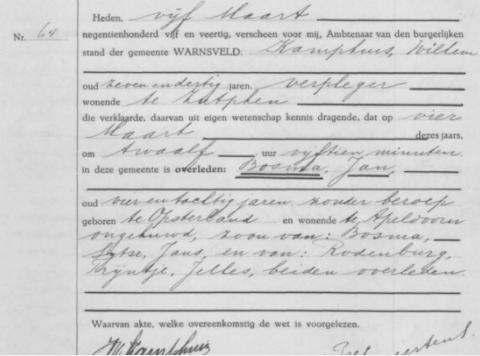 Heden, vijf Maart
Nr. 64 negentienhonderd vijf en veertig, verscheen voor mij, Ambtenaar van den burgerlijken
stand der gemeente WARNSVELD: Kamphuis, Willem
oud zeven en dertig jaren, verpleger
wonende te Zutphen
die verklaarde, daarvan uit eigen wetenschap kennis dragende, dat op vier
Maart dezes jaars,
om twaalf uur vijftien minuten
in deze gemeente is overleden: Bosma, Jan,
oud vier en tachtig jaren, zonder beroep
geboren te Opsterland en wonende te Apeldoorn
ongehuwd, zoon van: Bosma,
Sytse, Jans, en van: Rodenburg,
Trijntje, Jelles, beiden overleden.
Waarvan akte, welke overeenkomstig de wet is voorgelezen.
W Kamphuis